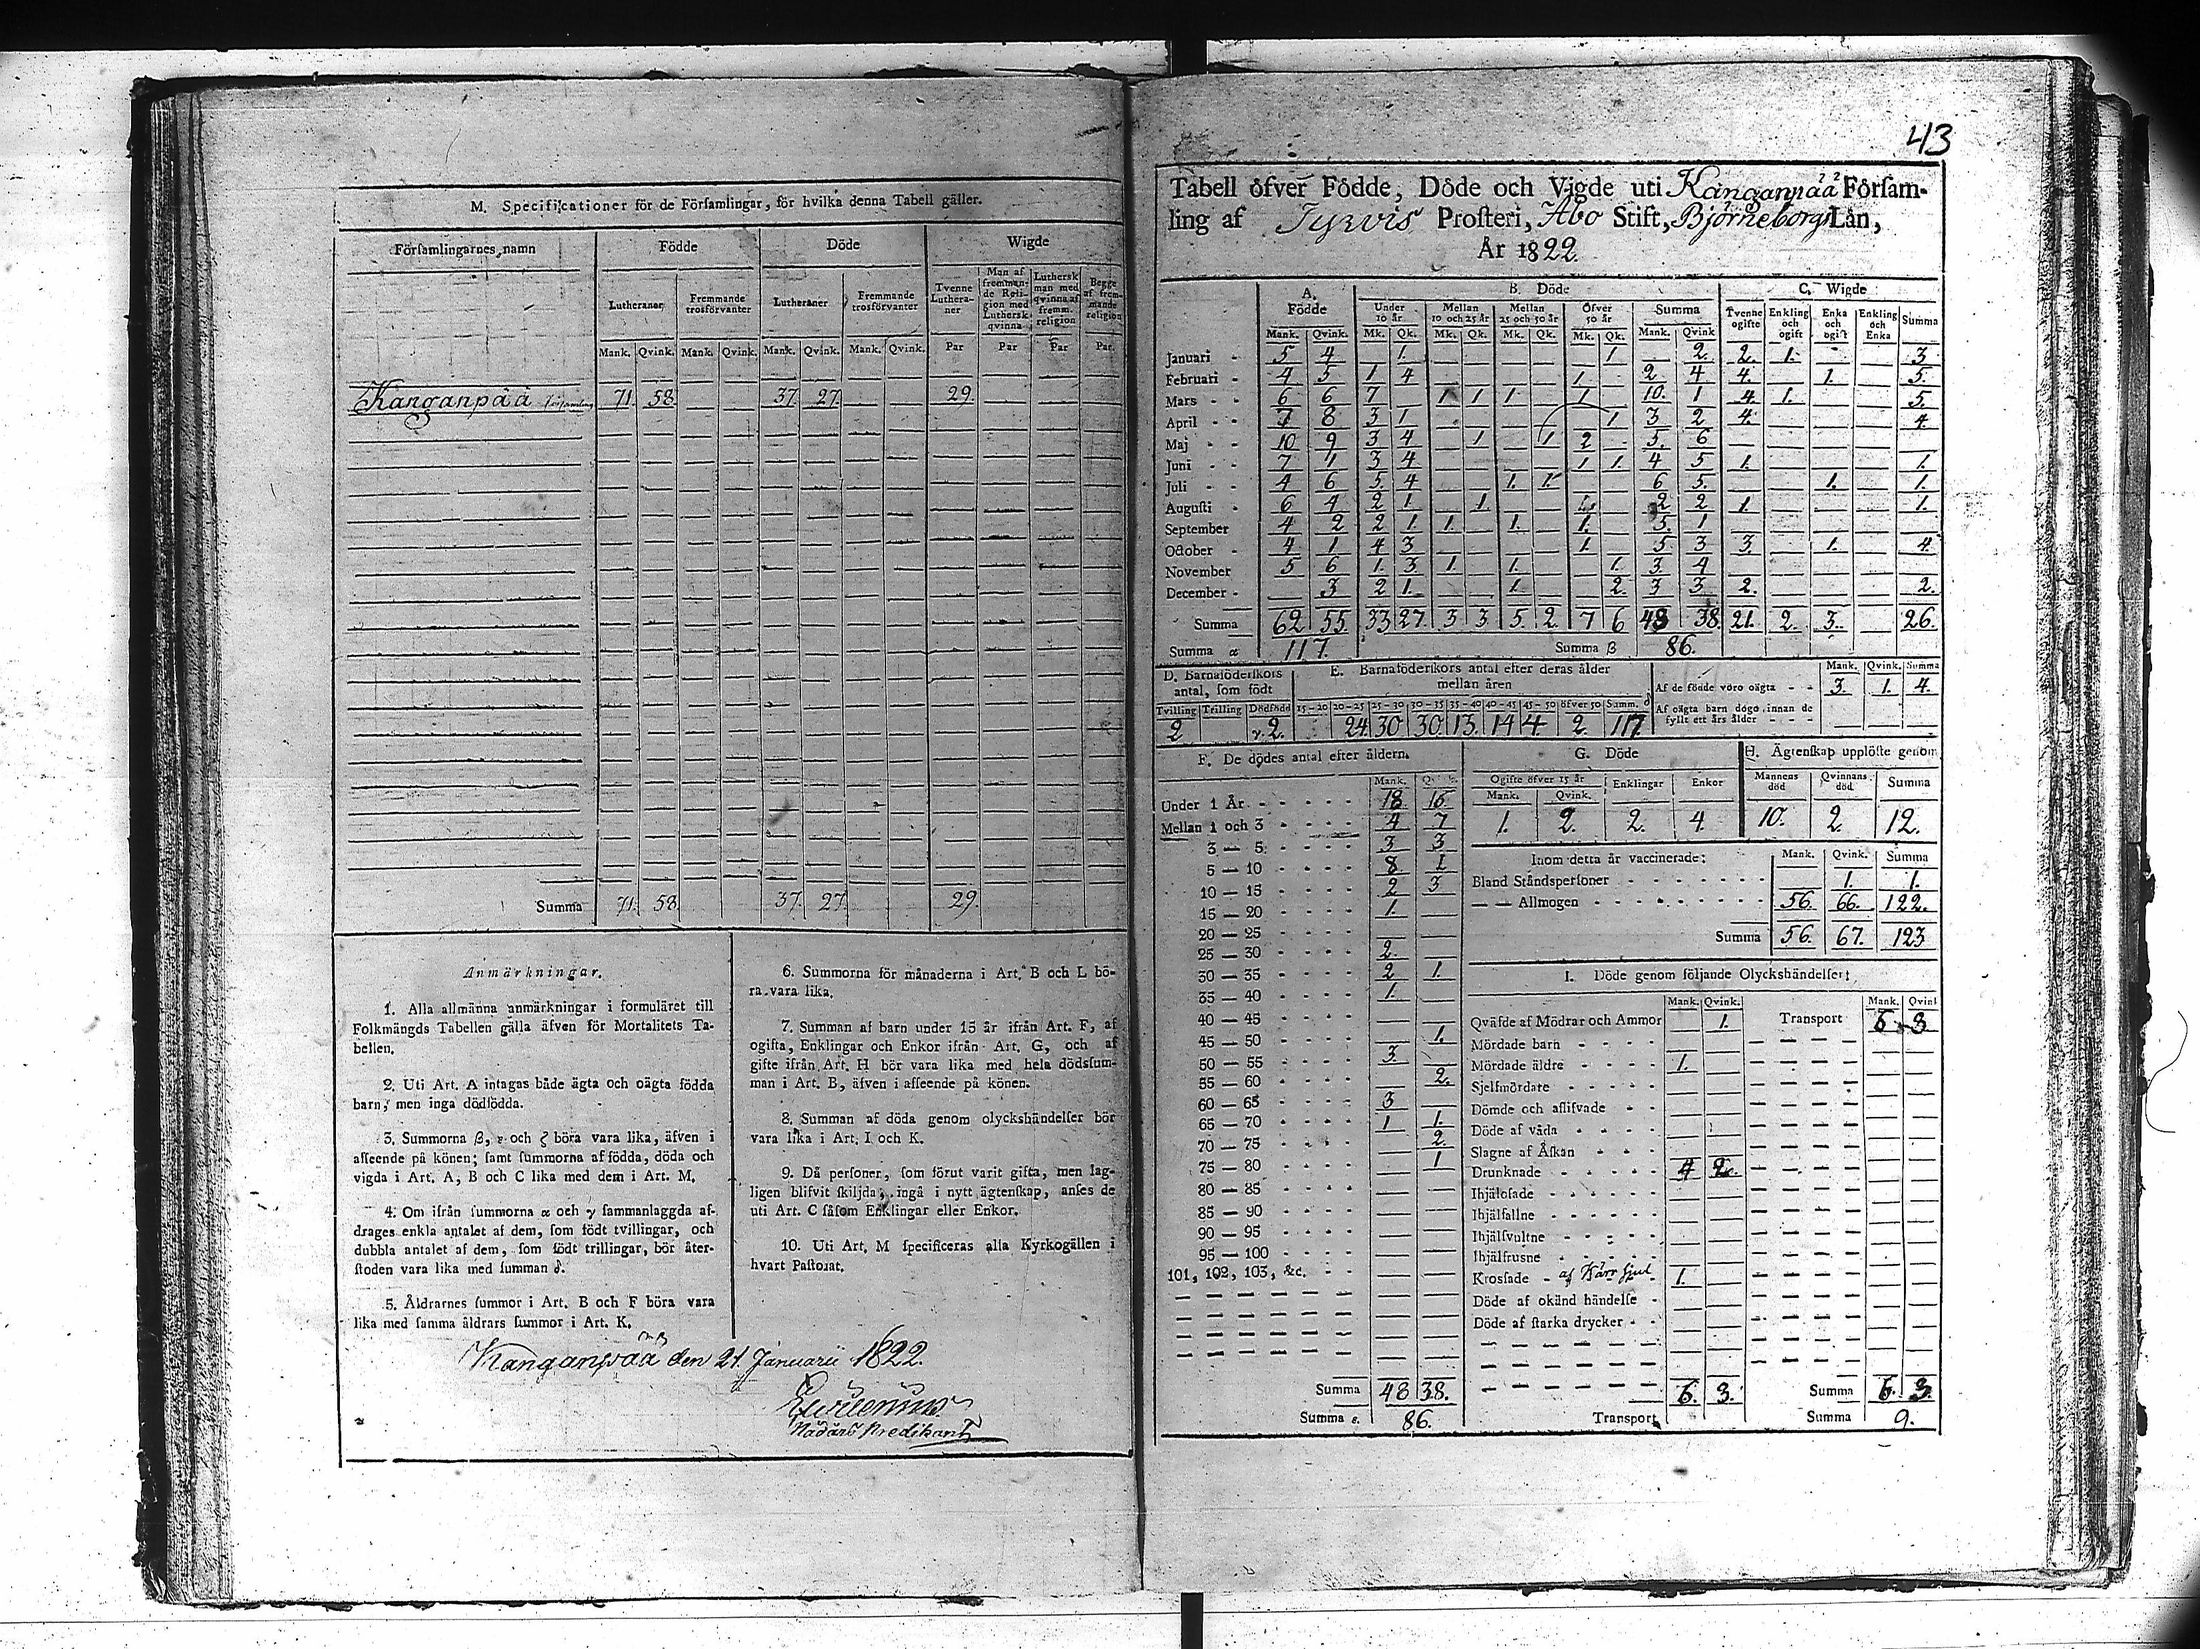 M. Specificationer för de Församlingar, för hvilka denna Tabell gäller.
Församlingarnes namn | Födde | Döde | Wigde
Lutheraner | Fremmande trosförvanter | Lutheraner | Fremmande trosförvanter | Tvenne Lutheraner | Man af fremmande Religion med Luthersk qvinna | Luthersk man med qvinna af fremm. religion | Begge af fremmande religion
Mank. Qvink. Mank. Qvink. Mank. Qvink. Mank. Qvink. Par Par Par Par.
Kanganpää församling 71. 58. — — 37. 27. — — 29. — — —
Summa 71. 58. 37. 27. 29.
Anmärkningar.
1. Alla allmänna anmärkningar i formuläret till
Folkmängds Tabellen gälla äfven för Mortalitets Ta-
bellen.
2. Uti Art. A intagas både ägta och oägta födda
barn, men inga dödfödda.
3. Summorna β, ε och ζ böra vara lika, äfven i
afseende på könen; samt summorna af födda, döda och
vigda i Art. A, B och C lika med dem i Art. M.
4. Om ifrån summorna α och γ sammanlaggda af-
drages enkla antalet af dem, som födt tvillingar, och
dubbla antalet af dem, som födt trillingar, bör åter-
stoden vara lika med summan δ.
5. Åldrarnes summor i Art. B och F böra vara
lika med samma åldrars summor i Art. K.
6. Summorna för månaderna i Art. B och L bö-
ra vara lika.
7. Summan af barn under 15 år ifrån Art. F, af
ogifta, Enklingar och Enkor ifrån Art. G, och af
gifte ifrån Art. H bör vara lika med hela dödssum-
man i Art. B, äfven i afseende på könen.
8. Summan af döda genom olyckshändelser bör
vara lika i Art. I och K.
9. Då personer, som förut varit gifta, men lag-
ligen blifvit skiljda, ingå i nytt ägtenskap, anses de
uti Art. C såsom Enklingar eller Enkor.
10. Uti Art. M specificeras alla Kyrkogällen i
hvart Pastorat.
Kanganpää den 21 Januarii 1822.
Nådårs Predikant
43
Tabell öfver Födde, Döde och Vigde uti Kanganpää Försam-
ling af Tyrvis Prosteri, Åbo Stift, Björneborgs Län,
År 1822.
A. Födde | B. Döde | C. Wigde
Under 10 år | Mellan 10 och 25 år | Mellan 25 och 50 år | Öfver 50 år | Summa | Tvenne ogifte | Enkling och ogift | Enka och ogift | Enkling och Enka | Summa
Mank. Qvink. Mk. Qk. Mk. Qk. Mk. Qk. Mk. Qk. Mank. Qvink
Januari 5 4 — 1. — — — — — 1 — 2. 2. 1. — — 3.
Februari 4 5 1 4 — — — — 1. — 2 4 4. — 1. — 5.
Mars 6 6 7 — 1 1 1. — 1. — 10. 1 4. 1. — — 5.
April 7 8 3 1 — — — — — 1 3 2 4. — — — 4.
Maj 10 9 3 4 — 1 — 1 2 — 5. 6 — — — — —
Juni 7 1 3 4 — — — — 1 1. 4 5 1. — — — 1.
Juli 4 6 5. 4 — — 1. 1. — — 6 5. — — 1. — 1.
Augusti 6 4 2 1 — 1. — — — 2 2 1. — — — 1.
September 4 2 2 1. 1. — 1. — 1. — 5. 1 — — — — —
October 4 1 4 3 — — — — 1. — 5. 3 3. — 1. — 4.
November 5 6 1. 3 1. — 1. — — 1. 3. 4 — — — — —
December — 3 2 1. — — 1. — — 2. 3 3 2. — — — 2.
Summa 62 55 33 27 3 3 5. 2. 7 6 48 38. 21. 2. 3. — 26.
Summa α 117. Summa β 86.
D. Barnaföderskors antal, som födt
Tvilling | Trilling | Dödfödd
2 γ. 2.
E. Barnaföderskors antal efter deras ålder
mellan åren
15—20 | 20—25 | 25—30 | 30—35 | 35—40 | 40—45 | 45—50 | öfver 50 | Summ. δ
24. 30 30. 13. 14 4 2. 117
Mank. Qvink. Summa
Af de födde voro oägta - - 3. 1. 4.
Af oägta barn dogo innan de
fyllt ett års ålder - - - — — —
F. De dödes antal efter åldern.
Mank.
Under 1 År 18
Mellan 1 och 3 4 7
3 — 5 3 3
5 — 10 8 1
10 — 15 2 3
15 — 20 1. —
20 — 25 — —
25 — 30 2. —
30 — 35 2 1.
35 — 40 1. —
40 — 45 — —
45 — 50 — 1.
50 — 55 3. —
55 — 60 — 2.
60 — 65 3 —
65 — 70 1 1.
70 — 75 — 2.
75 — 80 — 1
80 — 85 — —
85 — 90 — —
90 — 95 — —
95 — 100 — —
101, 102, 103, &c. — —
Summa 48 38.
Summa ε. 86.
G. Döde
Ogifte öfver 15 år | Enklingar | Enkor
Mank. Qvink.
1. 2. 2. 4.
H. Ägtenskap upplöste genom
Mannens död | Qvinnans död | Summa
10. 2. 12.
Inom detta år vaccinerade: Mank. Qvink. Summa
Bland Ståndspersoner — 1. 1.
— — Allmogen 56. 66. 122.
Summa 56. 67. 123
I. Döde genom följande Olyckshändelser:
Mank. Qvink. Mank. Qvink
Qväfde af Mödrar och Ammor — 1. Transport 6 3
Mördade barn — —
Mördade äldre 1. —
Sjelfmördare — —
Dömde och aflifvade — —
Döde af våda — —
Slagne af Åskan — —
Drunknade 4 2.
Ihjälosade — —
Ihjälfallne — —
Ihjälsvultne — —
Ihjälfrusne — —
Krossade - af Kärr hjul 1. —
Döde af okänd händelse — —
Döde af starka drycker — —
6. 3. Summa 6. 3.
Transport Summa 9.